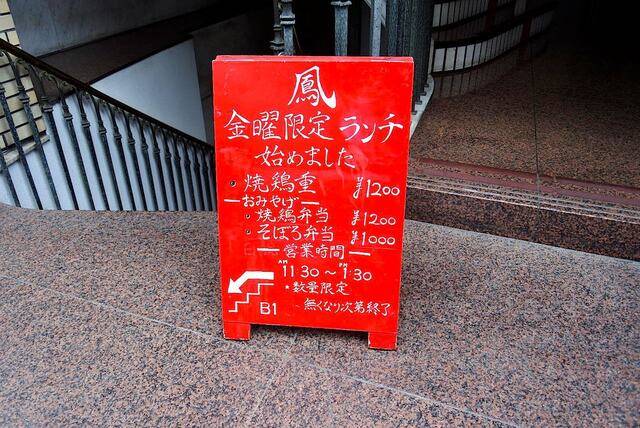 鳳
金曜限定 ランチ
始めました
・焼鶏重 ¥1200
―おみやげ―
・焼鶏弁当 ¥1200
・そぼろ弁当 ¥1000
―営業時間―
AM 11 30〜PM 1 30
*数量限定
無くなり次第終了
B1